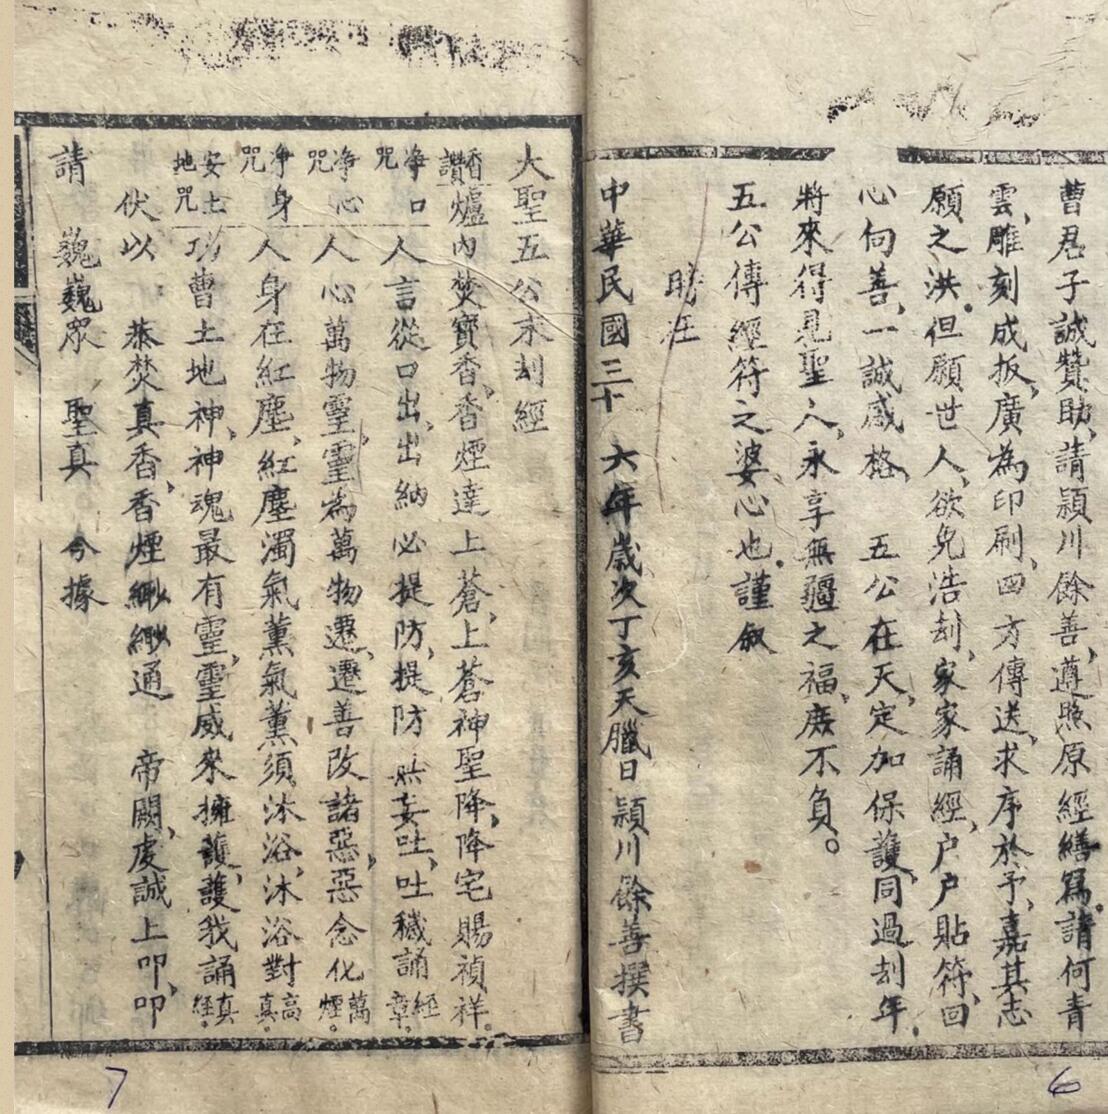 曹君子誠贊助、請潁川餘善、遵照原經繕寫。請何青
雲、雕刻成扳、廣為印刷、四方傳送、求序於予、嘉其志
願之洪。但願世人、欲免浩刦、家家誦經、户户貼符、回
心向善、一誠感格、五公在天、定加保護、同過刦年。
將來得見聖人、永享無疆之福、庶不負。
五公傳經符之婆心也。謹叙
時在
中華民國三十六年歲次丁亥天臘日潁川餘善撰書
6
大聖五公末刦經
香讚 爐內焚寶香、香煙達上蒼、上蒼神聖降、降宅賜禎祥。
净口咒 人言從口出、出納必提防、提防無妄吐、吐穢誦經章。
净心咒 人心萬物靈、靈為萬物遷、遷善改諸惡、惡念化萬煙。
净身咒 人身在紅塵、紅塵濁氣薰、氣薰須沐浴、沐浴對高真。
安土地咒 功曹土地神、神魂最有靈、靈威來擁護、護我誦真經。
伏以 恭焚真香、香煙緲緲通 帝闕、虔誠上叩、叩
請 巍巍眾 聖真 今據
7